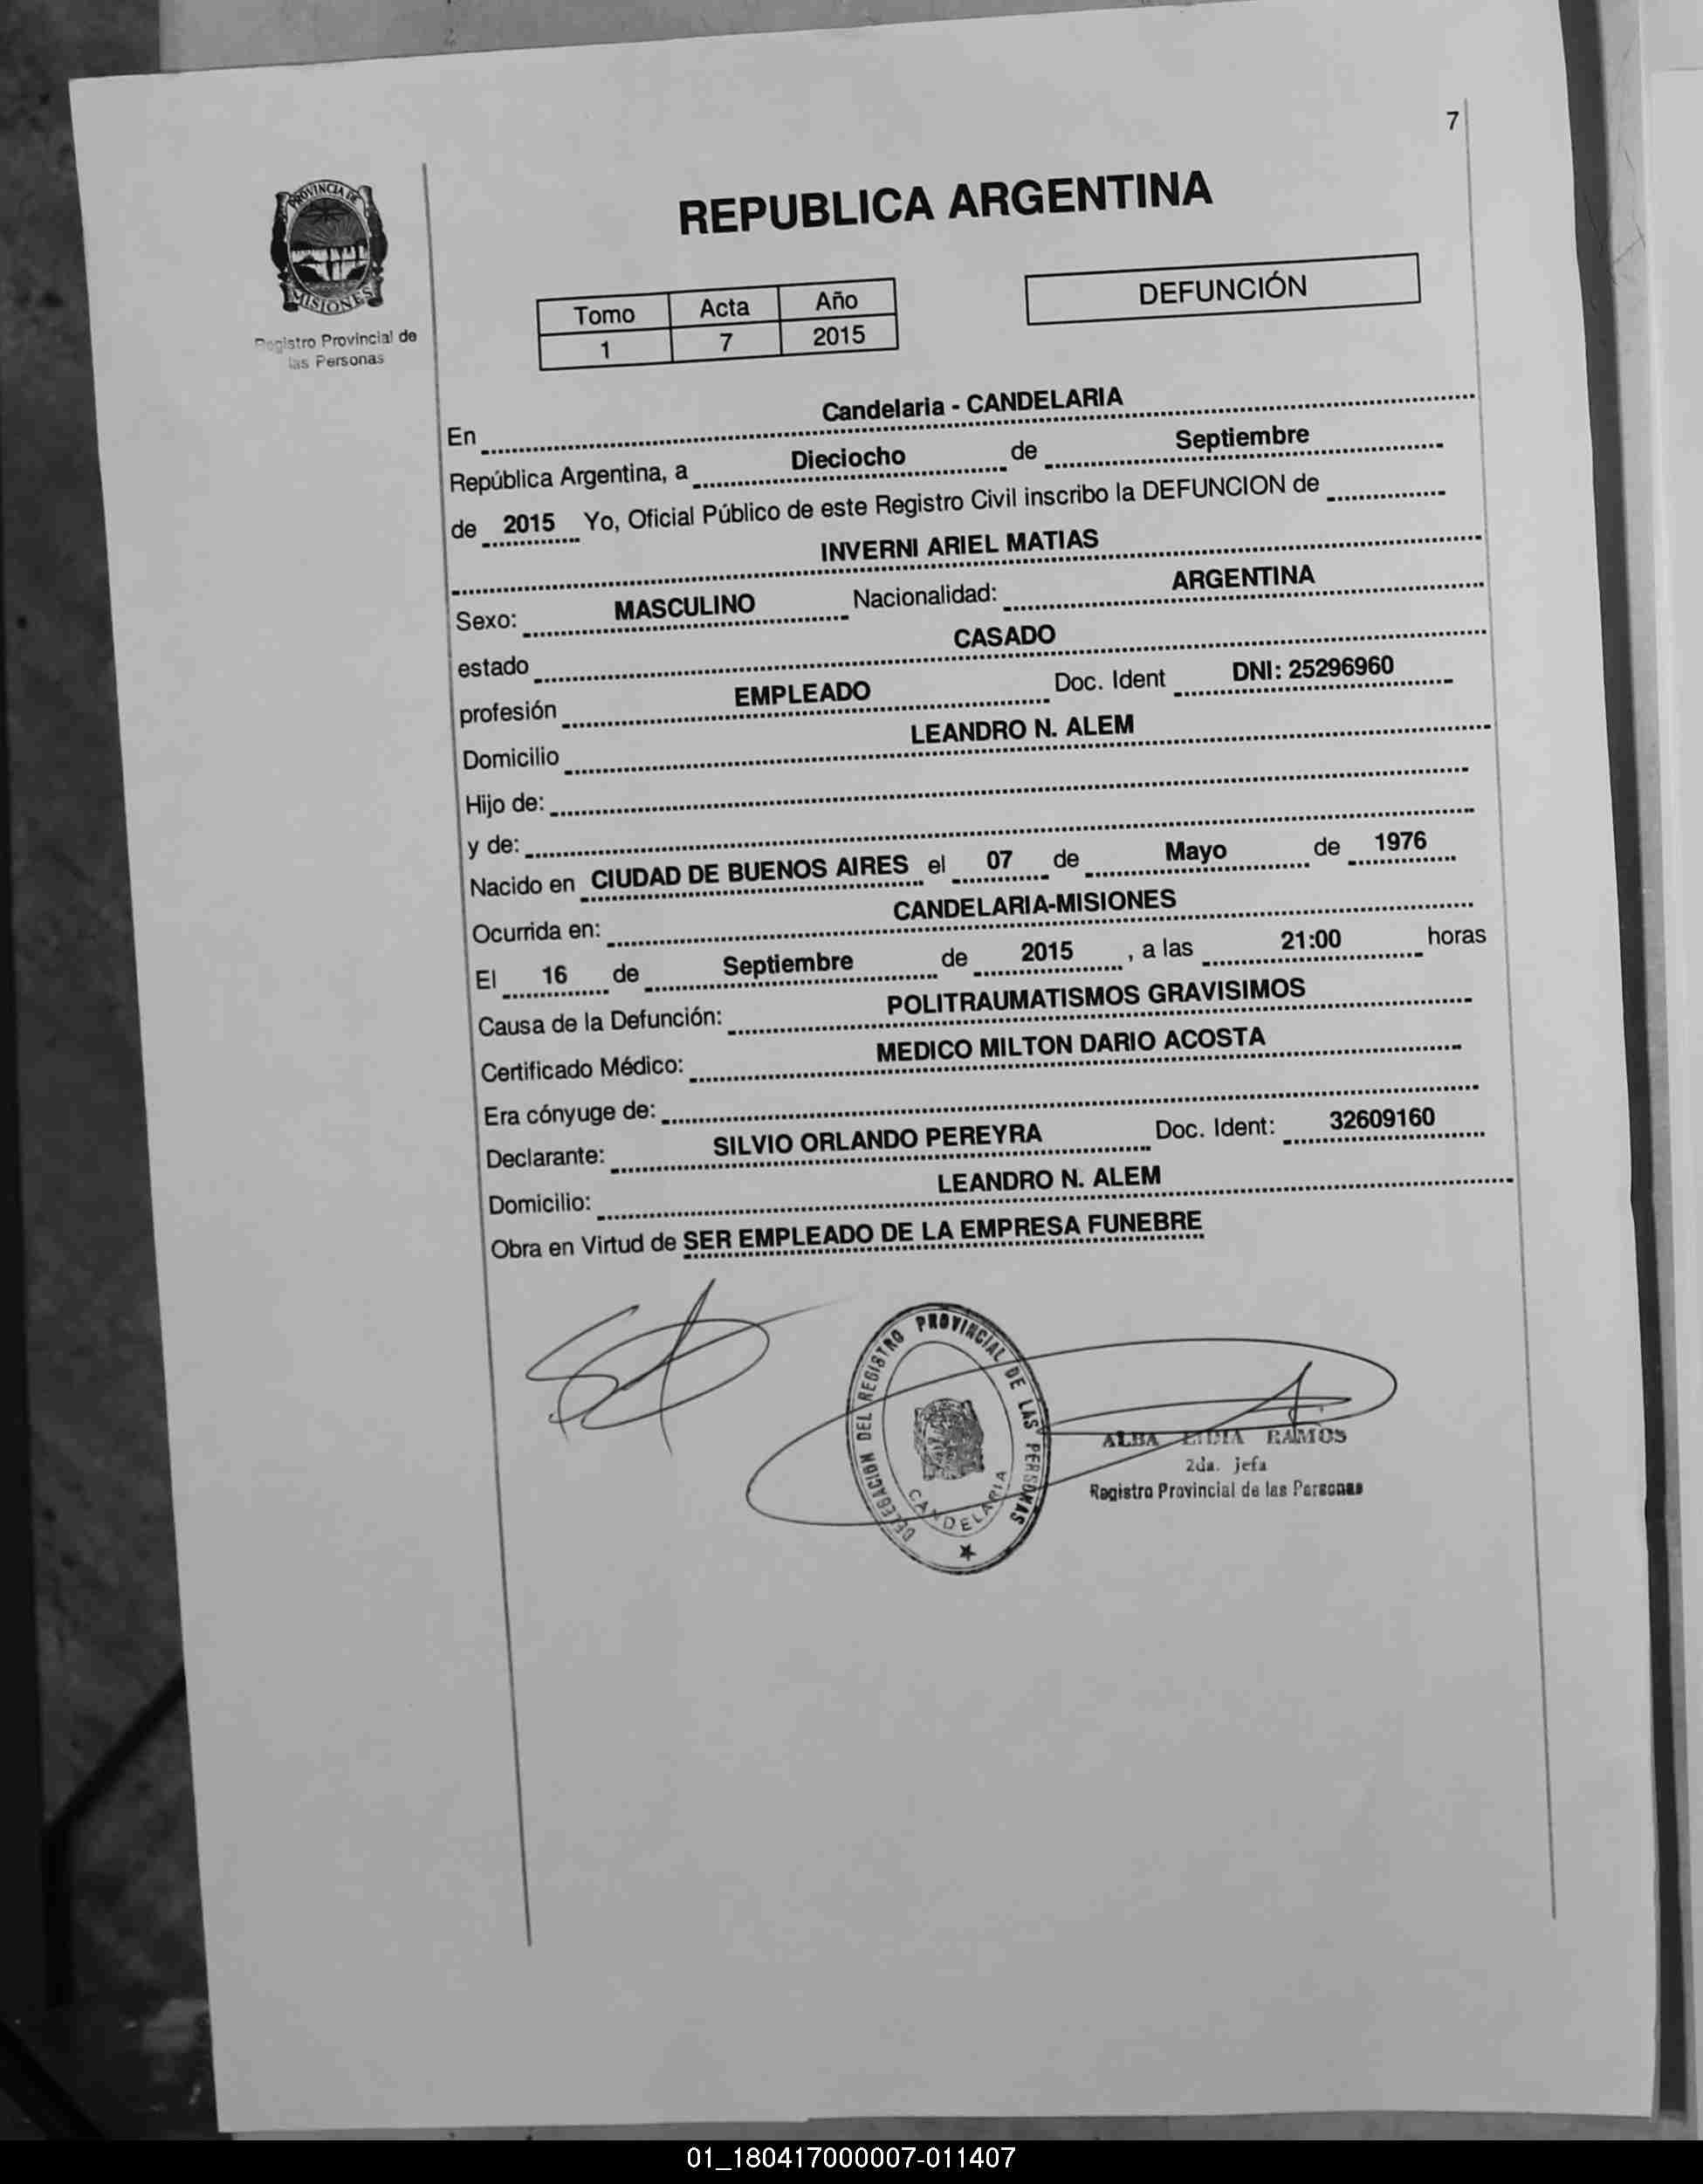 7
PROVINCIA DE
MISIONES
Registro Provincial de
las Personas
REPUBLICA ARGENTINA
Tomo Acta Año
1 7 2015
DEFUNCIÓN
En Candelaria - CANDELARIA
República Argentina, a Dieciocho de Septiembre
de 2015 Yo, Oficial Público de este Registro Civil inscribo la DEFUNCION de
INVERNI ARIEL MATIAS
Sexo: MASCULINO Nacionalidad: ARGENTINA
estado CASADO
profesión EMPLEADO Doc. Ident DNI: 25296960
Domicilio LEANDRO N. ALEM
Hijo de:
y de:
Nacido en CIUDAD DE BUENOS AIRES el 07 de Mayo de 1976
Ocurrida en: CANDELARIA-MISIONES
El 16 de Septiembre de 2015 , a las 21:00 horas
Causa de la Defunción: POLITRAUMATISMOS GRAVISIMOS
Certificado Médico: MEDICO MILTON DARIO ACOSTA
Era cónyuge de:
Declarante: SILVIO ORLANDO PEREYRA Doc. Ident: 32609160
Domicilio: LEANDRO N. ALEM
Obra en Virtud de SER EMPLEADO DE LA EMPRESA FUNEBRE
DELEGACION DEL REGISTRO PROVINCIAL DE LAS PERSONAS
CANDELARIA
ALBA LIDIA RAMOS
2da. jefa
Registro Provincial de las Personas
01_180417000007-011407